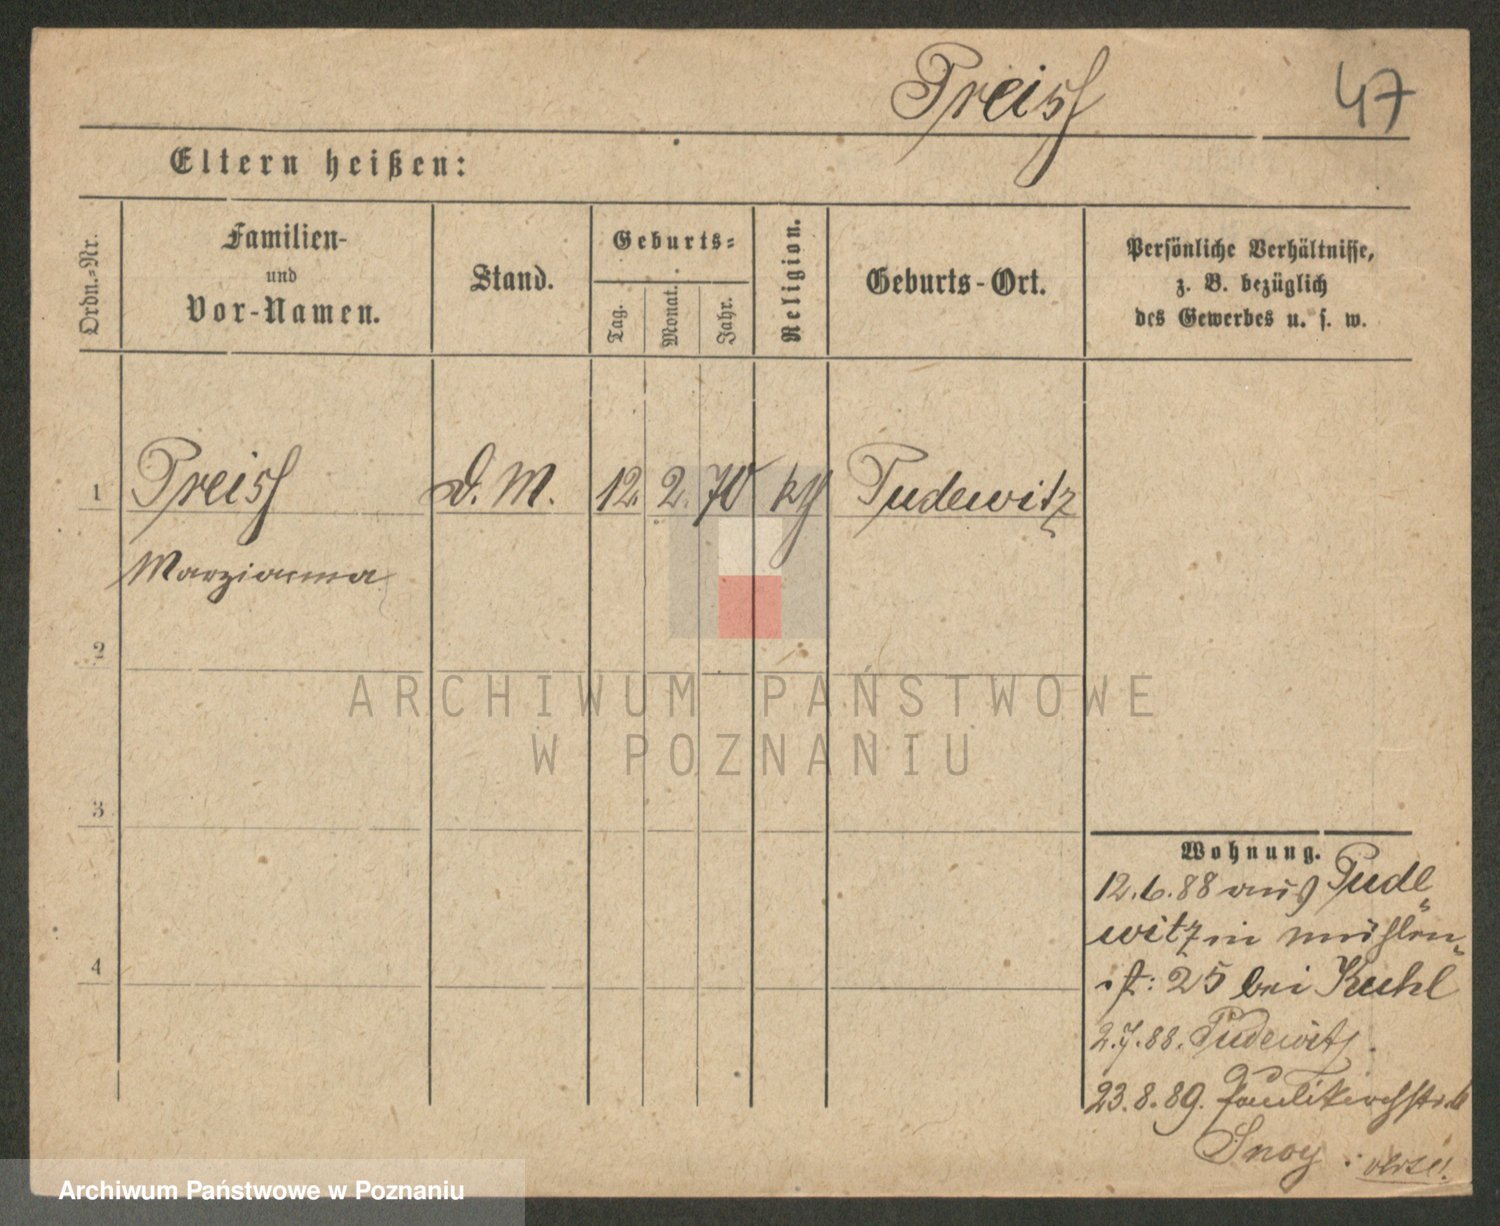 Preiss
47
Eltern heißen:
Ordn.-Nr.
Familien-
und
Vor-Namen.
Stand.
Geburts-
Tag.
Monat.
Jahr.
Religion.
Geburts-Ort.
Persönliche Verhältnisse,
z. B. bezüglich
des Gewerbes u. s. w.
1 Preiss D. M. 12. 2. 70 kth Pudewitz
Marzianna
2
ARCHIWUM PAŃSTWOWE
W POZNANIU
3
Wohnung.
12.6.88 aus Pude
witz in Mühlen
st: 25 bei Kuhl
4
2.7.88. Pudewitz.
23.8.89. Paulikirchstr.
Snoy
Archiwum Państwowe w Poznaniu